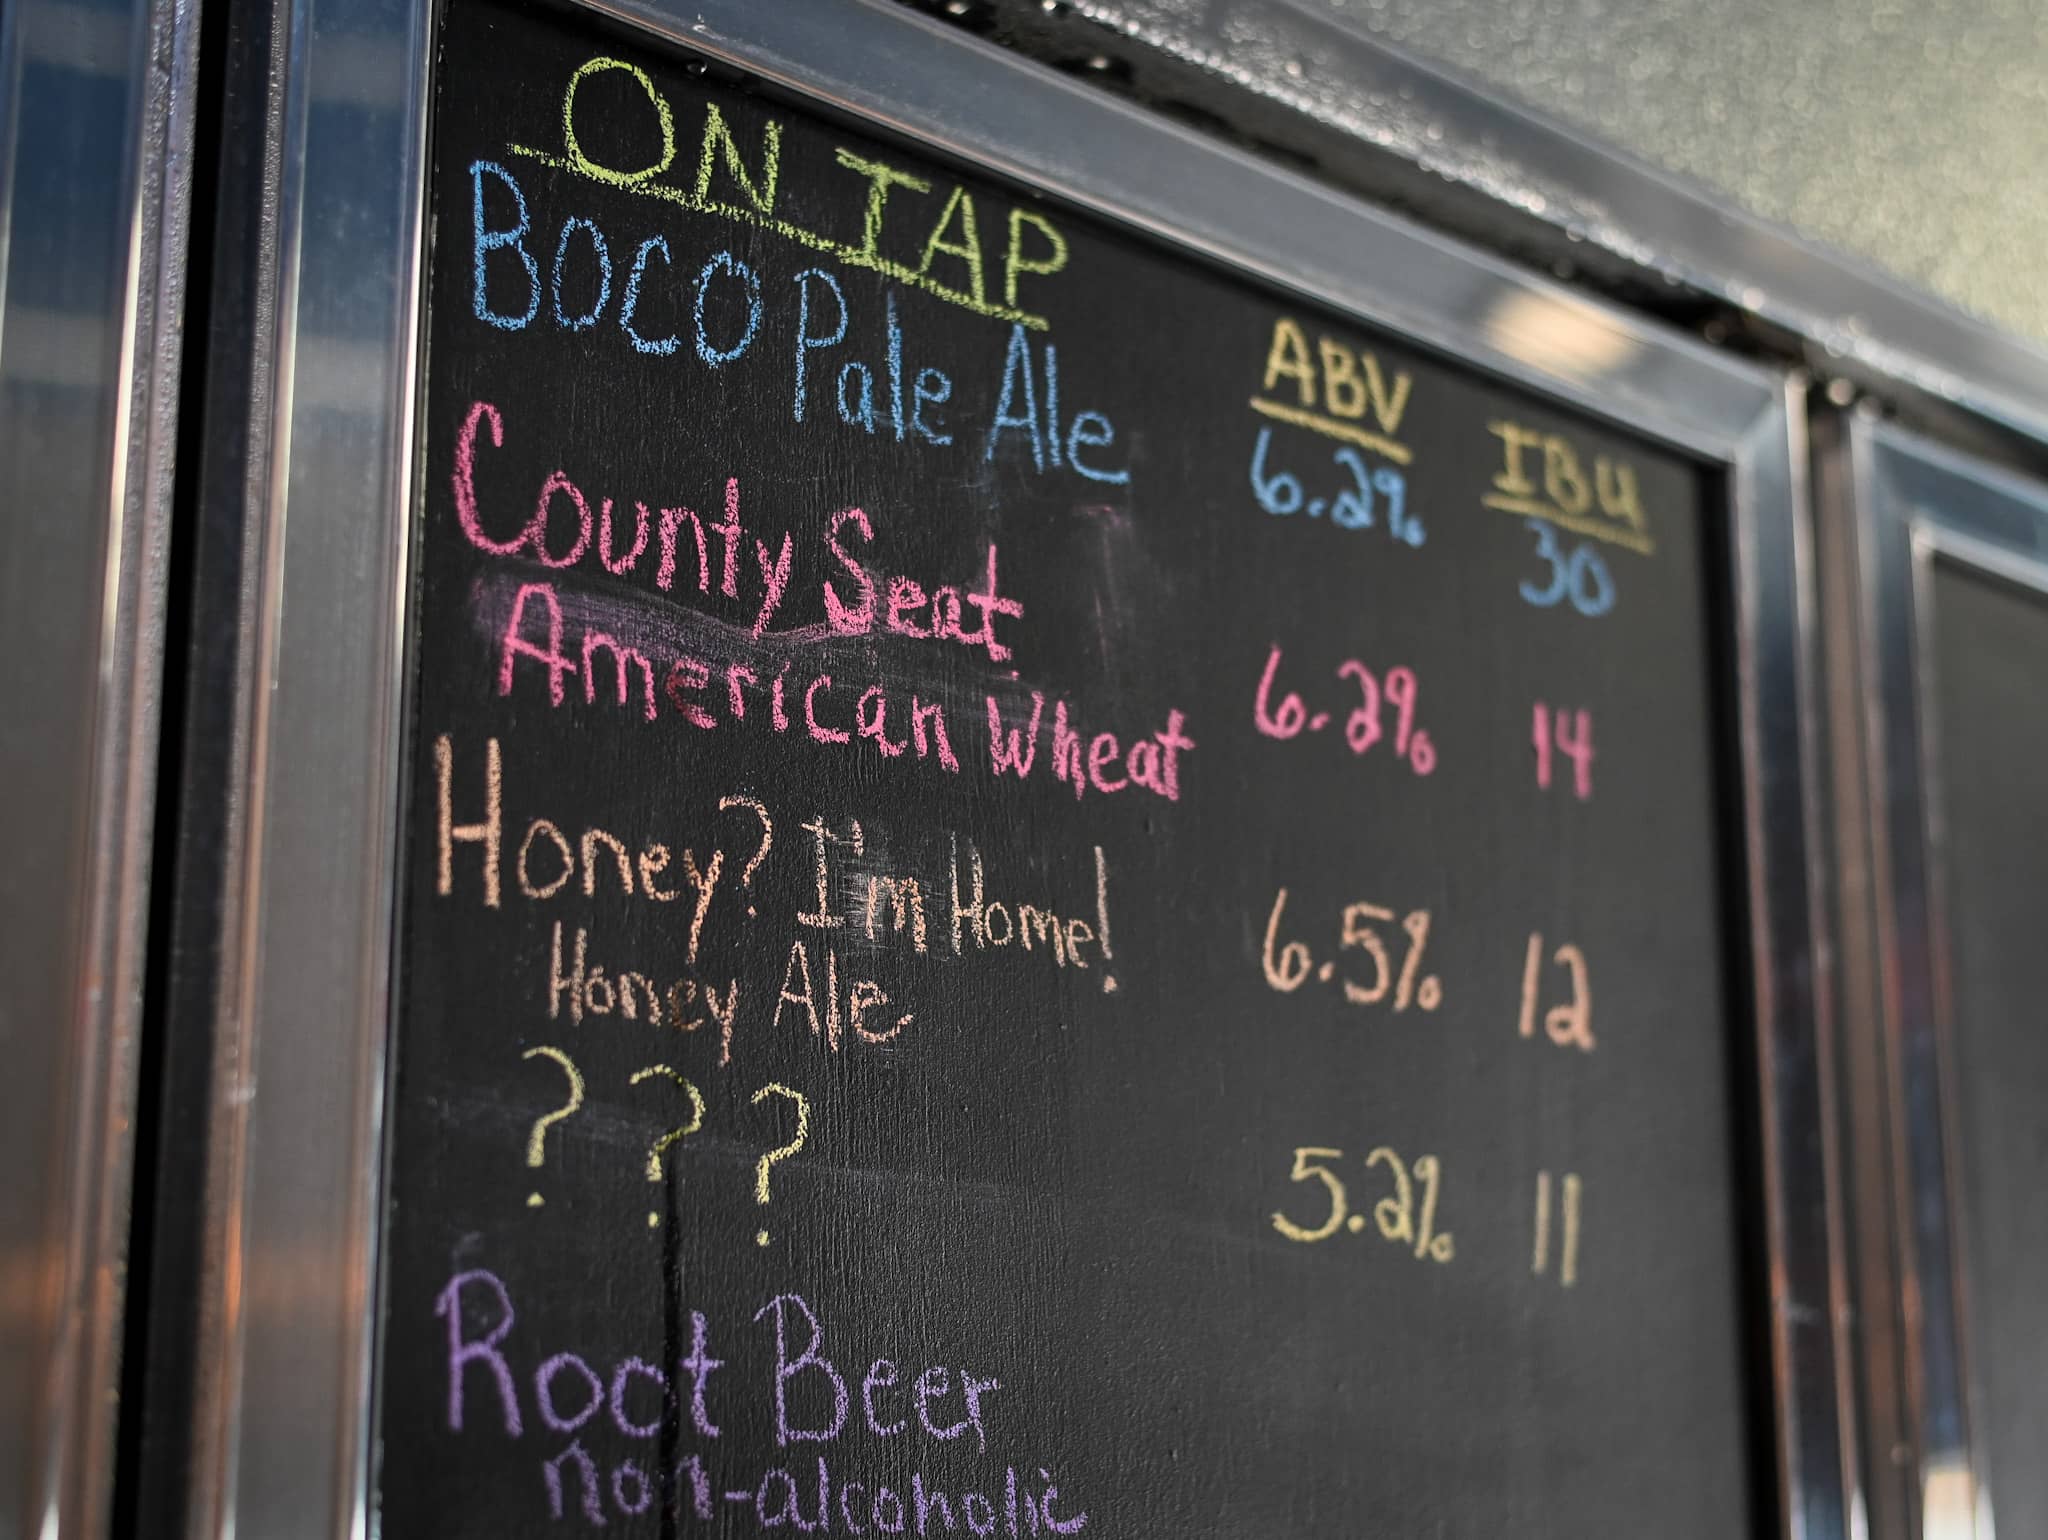 ON TAP
ABV IBU
BOCO Pale Ale 6.2% 30
County Seat
American Wheat 6.2% 14
Honey? I'm Home!
Honey Ale 6.5% 12
? ? ? 5.2% 11
Root Beer
non-alcoholic